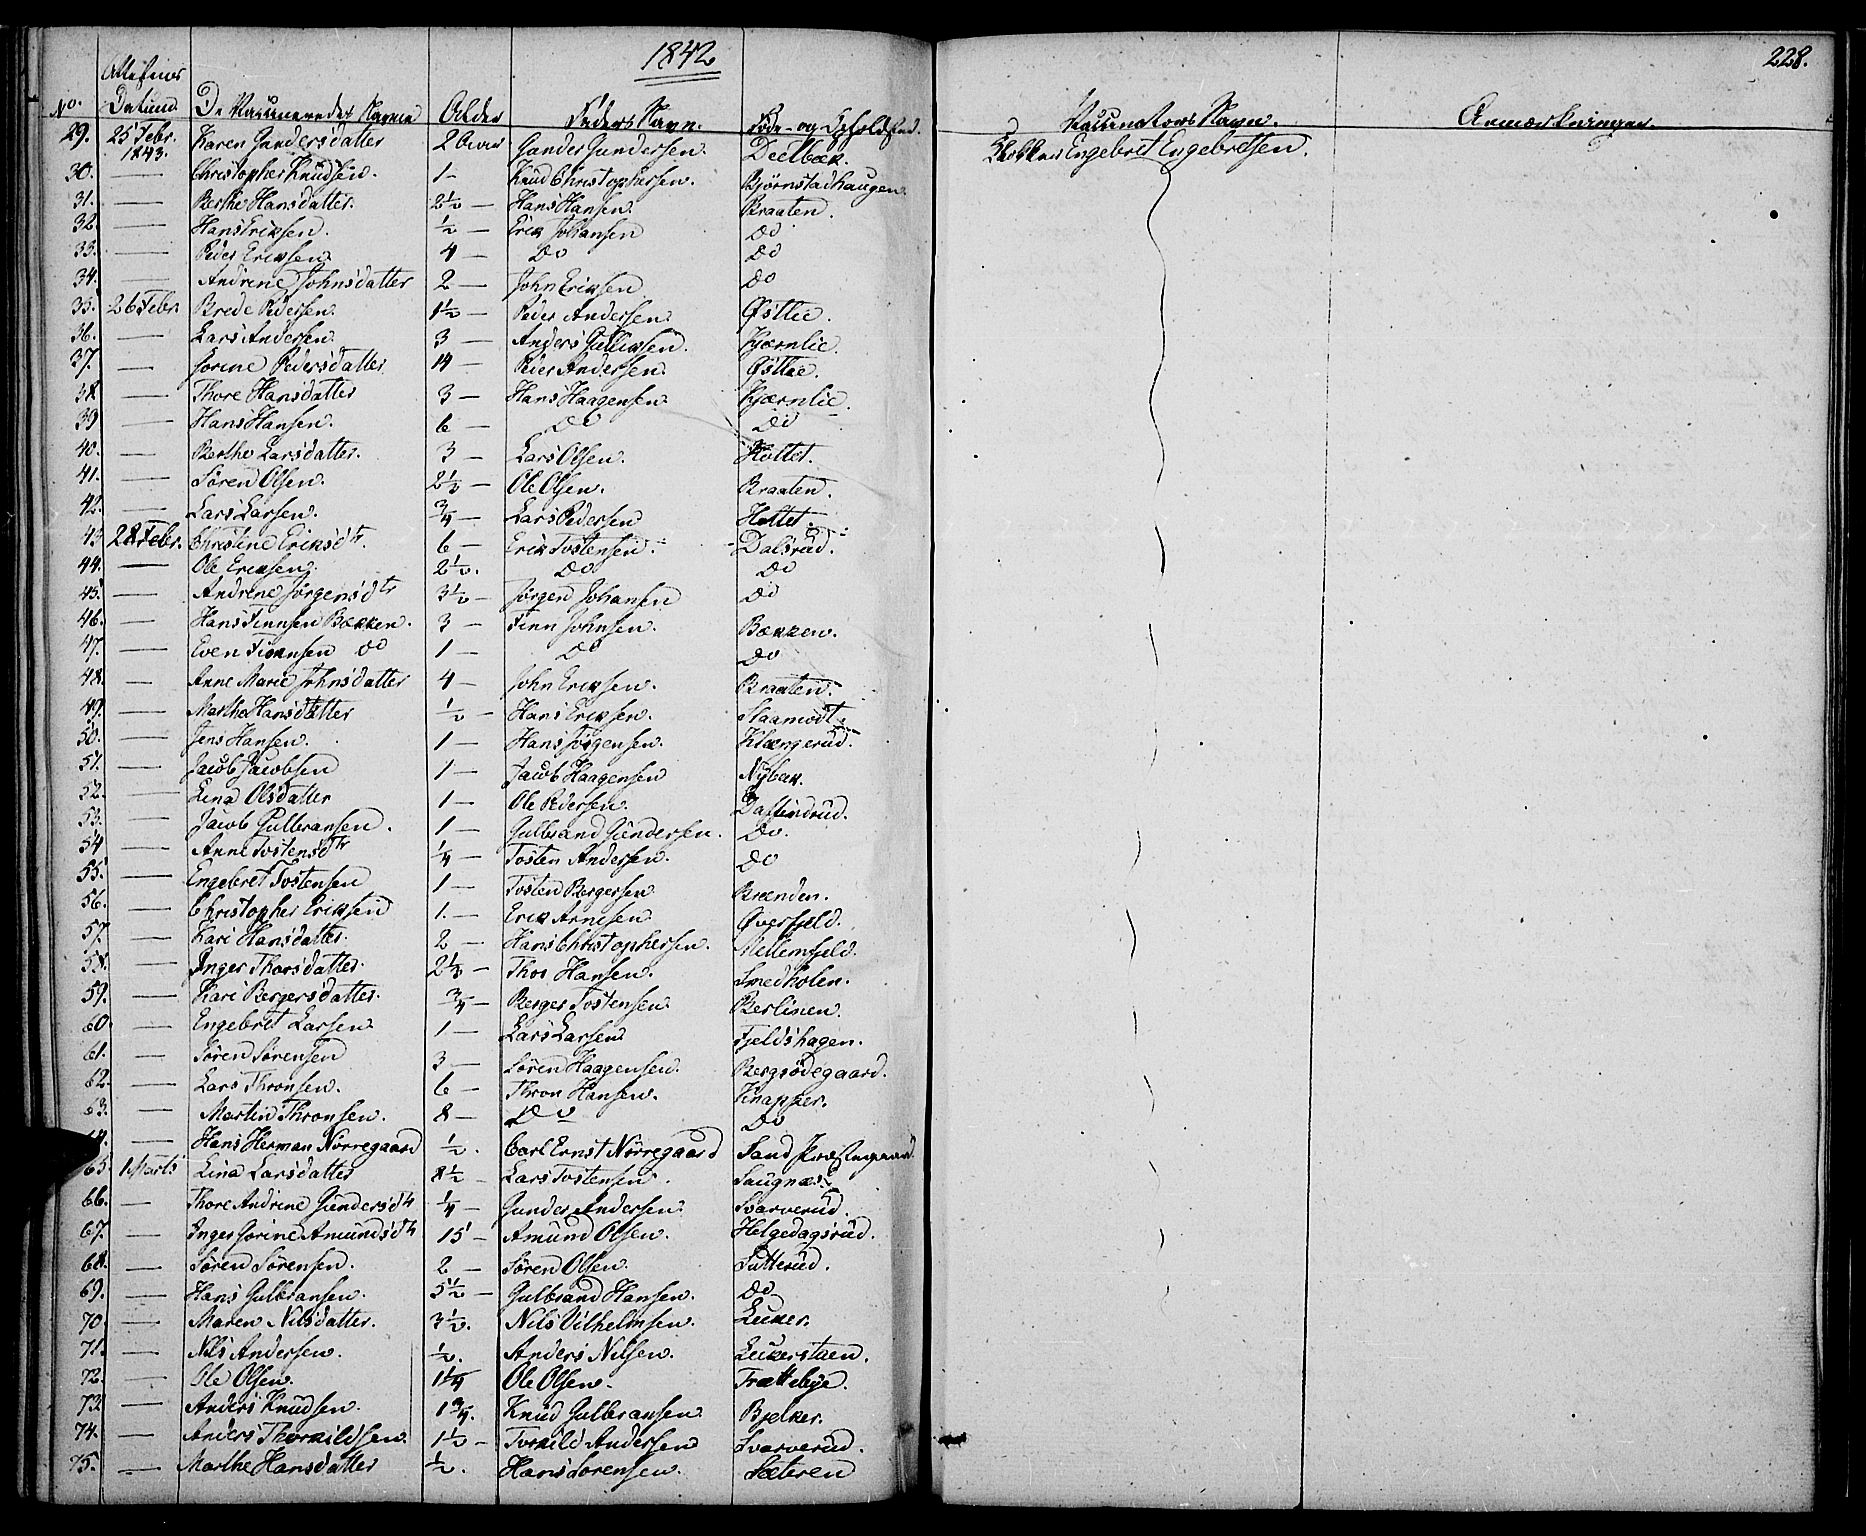 1842
228.
No. Attestens Datum De Vaccineredes Navne Alder Faders Navn. Føde- og Opholdsted. Vaccinators Navn. Anmærkninger.
29. 25 Febr. 1843. Karen Gundersdatter 2 Gunder Gundersen. Deelbæk. Klokker Engebret Engebretsen.
30. — Christopher Knudsen. 1 — Knud Christophersen. Bjørnstadhaugen.
31. — Berthe Hansdatter. 2½ — Hans Hansen. Braaten.
32. — Hans Eriksen. ½ — Erik Johansen Do
33. — Peder Eriksen. 4 — Do Do
34. — Andrine Johnsdatter 2 — John Eriksen Do
35. 26 Febr. Brede Pedersen. 1½ — Peder Andersen. Østlie.
36. — Lars Andersen. 3 — Anders Gulliksen. Kjærnlie.
37. — Jorine Pedersdatter 14 — Peder Andersen. Østlie.
38. — Thore Hansdatter 3 — Hans Haagensen. Kjærnlie.
39 — Hans Hansen. 6 — Do Do
40. — Berthe Larsdatter. 3 — Lars Olsen. Holtet.
41. — Søren Olsen. 2½ — Ole Olsen. Braaten.
42. — Lars Larsen. ¾ — Lars Pedersen Holtet.
43 28 Febr. Christine Eriksdtr. 6 — Erik Tostensen. Dalsrud.
44. — Ole Eriksen. 2½. Do Do
45. — Andrine Jørgensdtr 3½ — Jørgen Johansen Do
46. — Hans Finnsen Bækken. 3 — Finn Johnsen. Bækken.
47. — Even Finnsen Do 1 — Do Do
48. — Anne Marie Johnsdatter 4 — John Eriksen. Braaten.
49. — Marthe Hansdatter ½ — Hans Eriksen. Staamodt.
50. — Jens Hansen. 1 — Hans Jørgensen. Klængerud.
51. — Jacob Jacobsen 1 — Jacob Haagensen Nybak.
52. — Lina Olsdatter 1 — Ole Pedersen. Daffindrud.
53. — Jacob Gulbransen. 1 — Gulbrand Gundersen. Do.
54 — Anne Tostensdtr ¼ — Tosten Andersen. Do
55. — Engebret Tostensen 1 — Tosten Bergersen. Brænden.
56. — Christopher Eriksen 1. — Erik Arnesen. Øverfjeld.
57. — Kari Hansdatter. 2 — Hans Christophersen. Mellemfjeld.
58. — Inger Thorsdatter. 2½ — Thor Hansen. Smedholen.
59. — Kari Bergersdatter. ¾ — Berger Tostensen. Berlinen.
60. — Engebret Larsen. 1 — Lars Larsen Fjeldshagen.
61. — Søren Sørensen 3 — Søren Haagensen. Bergsödegaard.
62. — Lars Thronsen. 6 — Thron Hansen. Knapper.
63. — Martin Thronsen. 8 — Do Do
64. — Hans Herman Nörregaard ½. Carl Ernst Nörregaard Sand Præstegaard.
65 1 Marts Lina Larsdatter 8½ — Lars Tostensen. Saugnæs.
66. — Thore Andrine Gundersdtr ¼ — Gunder Andersen. Svarverud.
67. — Inger Jorine Amundsdtr 15 — Amund Olsen. Helgedagsrud.
68. — Søren Sørensen. 2 — Søren Olsen. Sutterud.
69. — Hans Gulbransen. 5½ — Gulbrand Hansen. Do
70 — Maren Nilsdatter. 3½. Nils Vilhelmsen. Leuker.
71. — Nils Andersen. ½. Anders Nilsen. Leukerstuen.
72. — Ole Olsen. 1¼ Ole Olsen. Trættebye.
73 — Anders Knudsen. 1¾. Knud Gulbransen. Bjelker.
74. — Anders Thorkildsen. 1½ — Torkild Andersen Svarverud.
75. — Marthe Hansdatter ½. Hans Sorensen. Sæteren